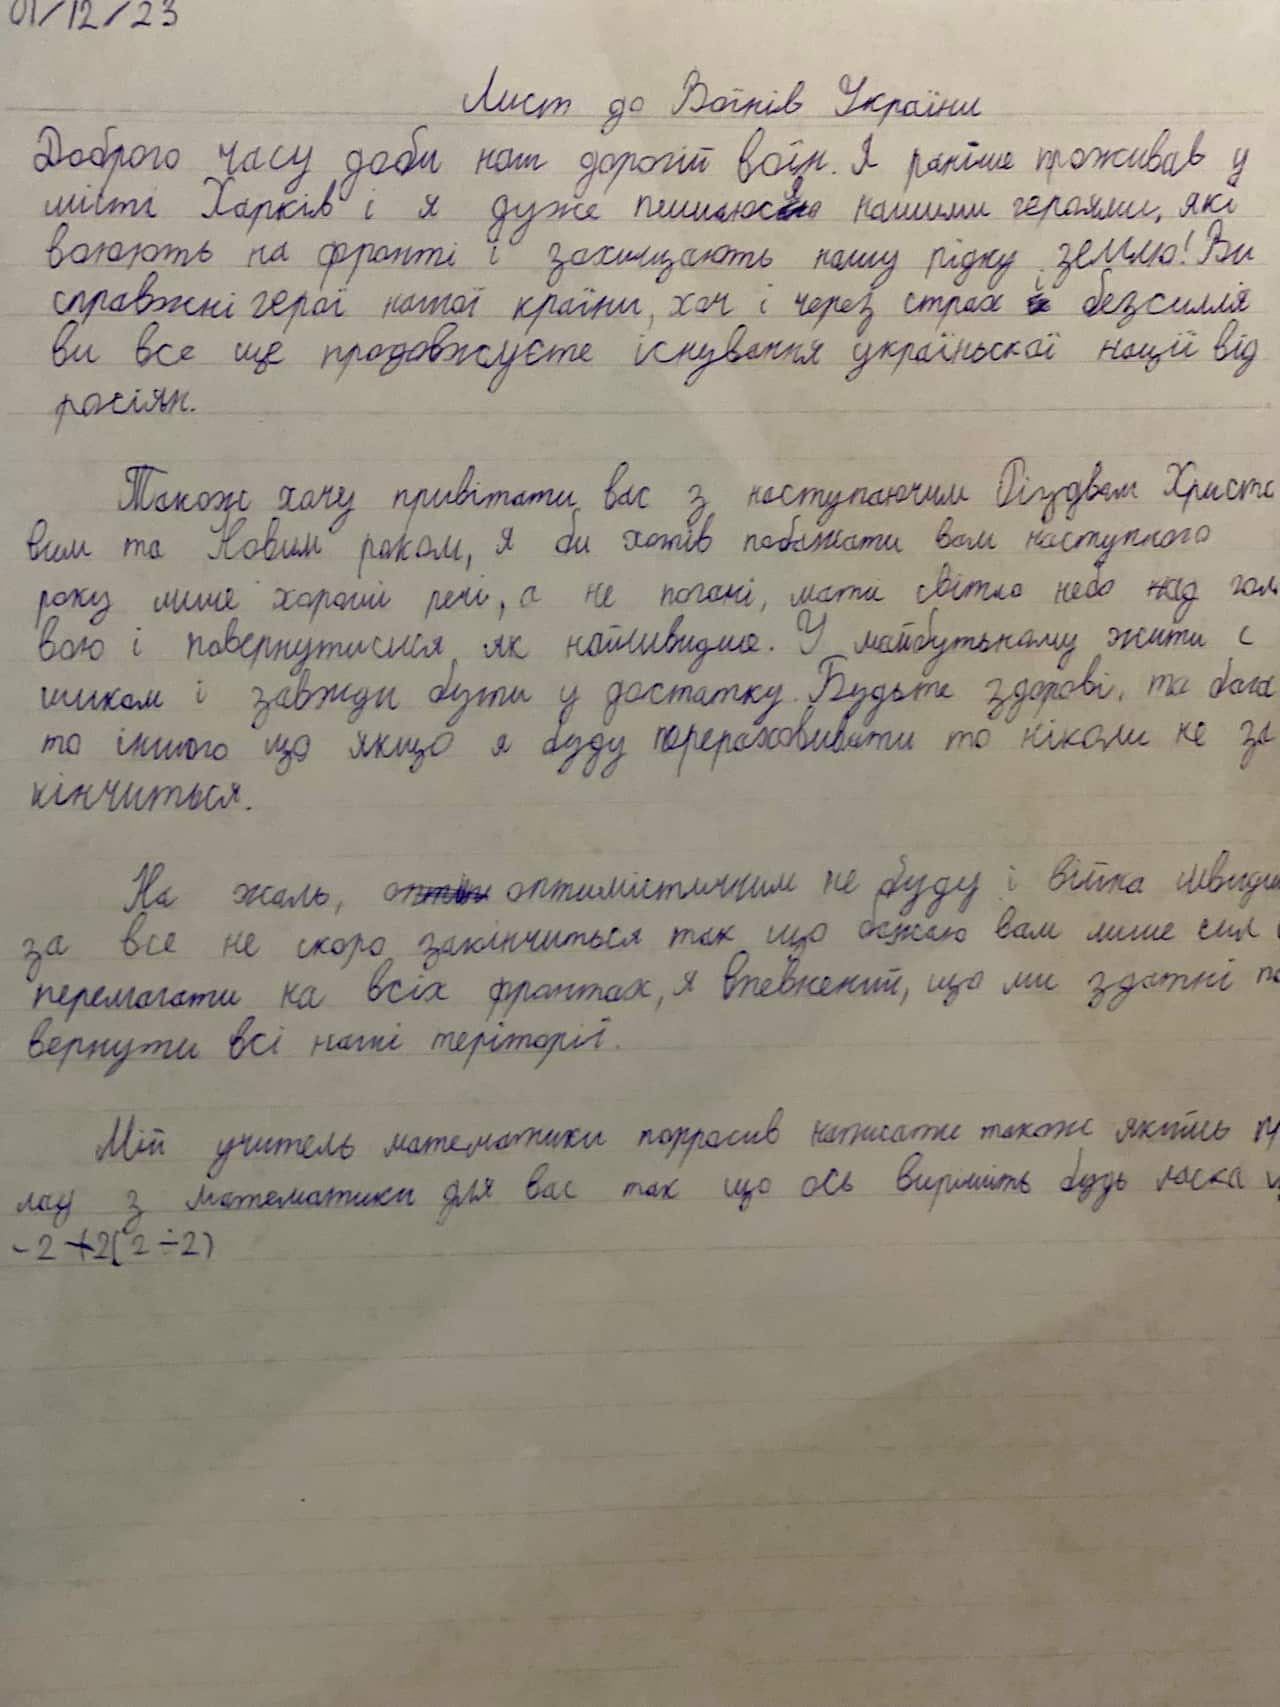 01/12/23
Лист до Воїнів України
Доброго часу доби наш дорогій воїн. Я раніше проживав у
місті Харків і я дуже пишаюся нашими героями, які
воюють на фронті і захищають нашу рідну землю! Ви
справжні герої нашої країни, хоч і через страх і безсилля
ви все ще продовжуєте існування україньскої нації від
росіян.
Також хочу привітати вас з наступаючим Різдвом Христо
вим та Новим роком, я би хотів побажати вам наступного
року лише хороші речі, а не погані, мати світло небо над голо
вою і повернутися як найшвидше. У майбутньому жити с
шиком і завжди бути у достатку. Будьте здорові, та бага
то іншого що якщо я буду перераховивати то ніколи не за
кінчиться.
На жаль, оптимістичним не буду і війна швидше
за все не скоро закінчиться так що бажаю вам лише сил і
перемагати на всіх фронтах, я впевнений, що ми здатні по
вернути всі наші теріторії.
Мій учитель математики попросив написати також якийсь пр
лад з математики для вас так що ось вирішіть будь ласка
-2+2(2÷2)